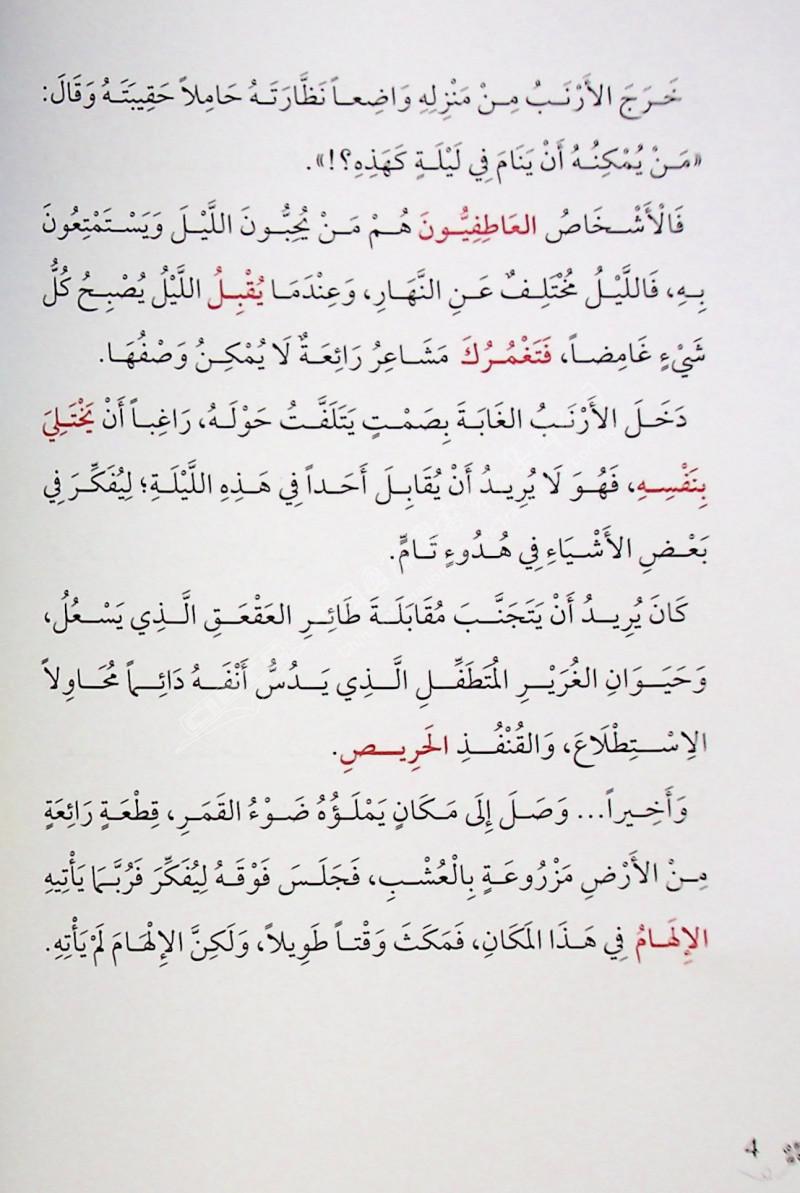 خَرَجَ الأَرْنَبُ مِنْ مَنْزِلِهِ وَاضِعاً نَظَّارَتَهُ حَامِلاً حَقِيبَتَهُ وَقَالَ:
«مَنْ يُمْكِنُهُ أَنْ يَنَامَ فِي لَيْلَةٍ كَهَذِهِ؟!».
فَالْأَشْخَاصُ العَاطِفِيُّونَ هُمْ مَنْ يُحِبُّونَ اللَّيْلَ وَيَسْتَمْتِعُونَ
بِهِ، فَاللَّيْلُ مُخْتَلِفٌ عَنِ النَّهَارِ، وَعِنْدَمَا يُقْبِلُ اللَّيْلُ يُصْبِحُ كُلُّ
شَيْءٍ غَامِضاً، فَتَغْمُرُكَ مَشَاعِرُ رَائِعَةٌ لَا يُمْكِنُ وَصْفُهَا.
دَخَلَ الأَرْنَبُ الغَابَةَ بِصَمْتٍ يَتَلَفَّتُ حَوْلَهُ، رَاغِباً أَنْ يَخْتَلِيَ
بِنَفْسِهِ، فَهُوَ لَا يُرِيدُ أَنْ يُقَابِلَ أَحَداً فِي هَذِهِ اللَّيْلَةِ؛ لِيُفَكِّرَ فِي
بَعْضِ الأَشْيَاءِ فِي هُدُوءٍ تَامٍّ.
كَانَ يُرِيدُ أَنْ يَتَجَنَّبَ مُقَابَلَةَ طَائِرِ العَقْعَقِ الَّذِي يَسْعُلُ،
وَحَيَوَانِ الغُرَيْرِ المُتَطَفِّلِ الَّذِي يَدُسُّ أَنْفَهُ دَائِماً مُحَاوِلاً
الاِسْتِطْلَاعَ، وَالقُنْفُذِ الحَرِيصِ.
وَأَخِيراً... وَصَلَ إِلَى مَكَانٍ يَمْلَؤُهُ ضَوْءُ القَمَرِ، قِطْعَةٍ رَائِعَةٍ
مِنْ الأَرْضِ مَزْرُوعَةٍ بِالْعُشْبِ، فَجَلَسَ فَوْقَهُ لِيُفَكِّرَ فَرُبَّمَا يَأْتِيهِ
الإِلهَامُ فِي هَذَا المَكَانِ، فَمَكَثَ وَقْتاً طَوِيلاً، وَلَكِنَّ الإِلْهَامَ لَمْ يَأْتِهِ.
4